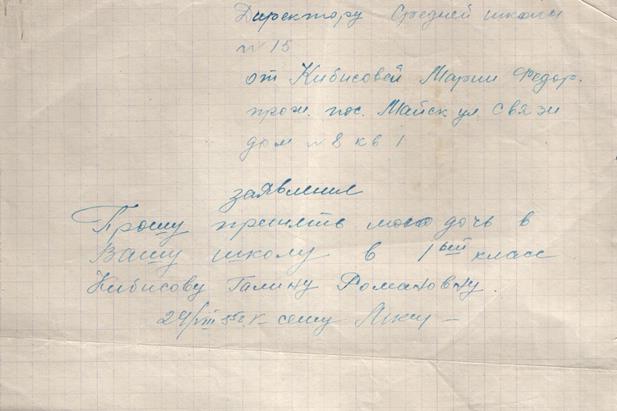 Директору Средней школы
№ 15
от Кибисовой Марии Федор.
прож. пос. Майск ул Связи
дом № 8 кв 1
заявление
Прошу принять мою дочь в
Вашу школу в 1ый класс
Кибисову Галину Романовну.
24/VIII